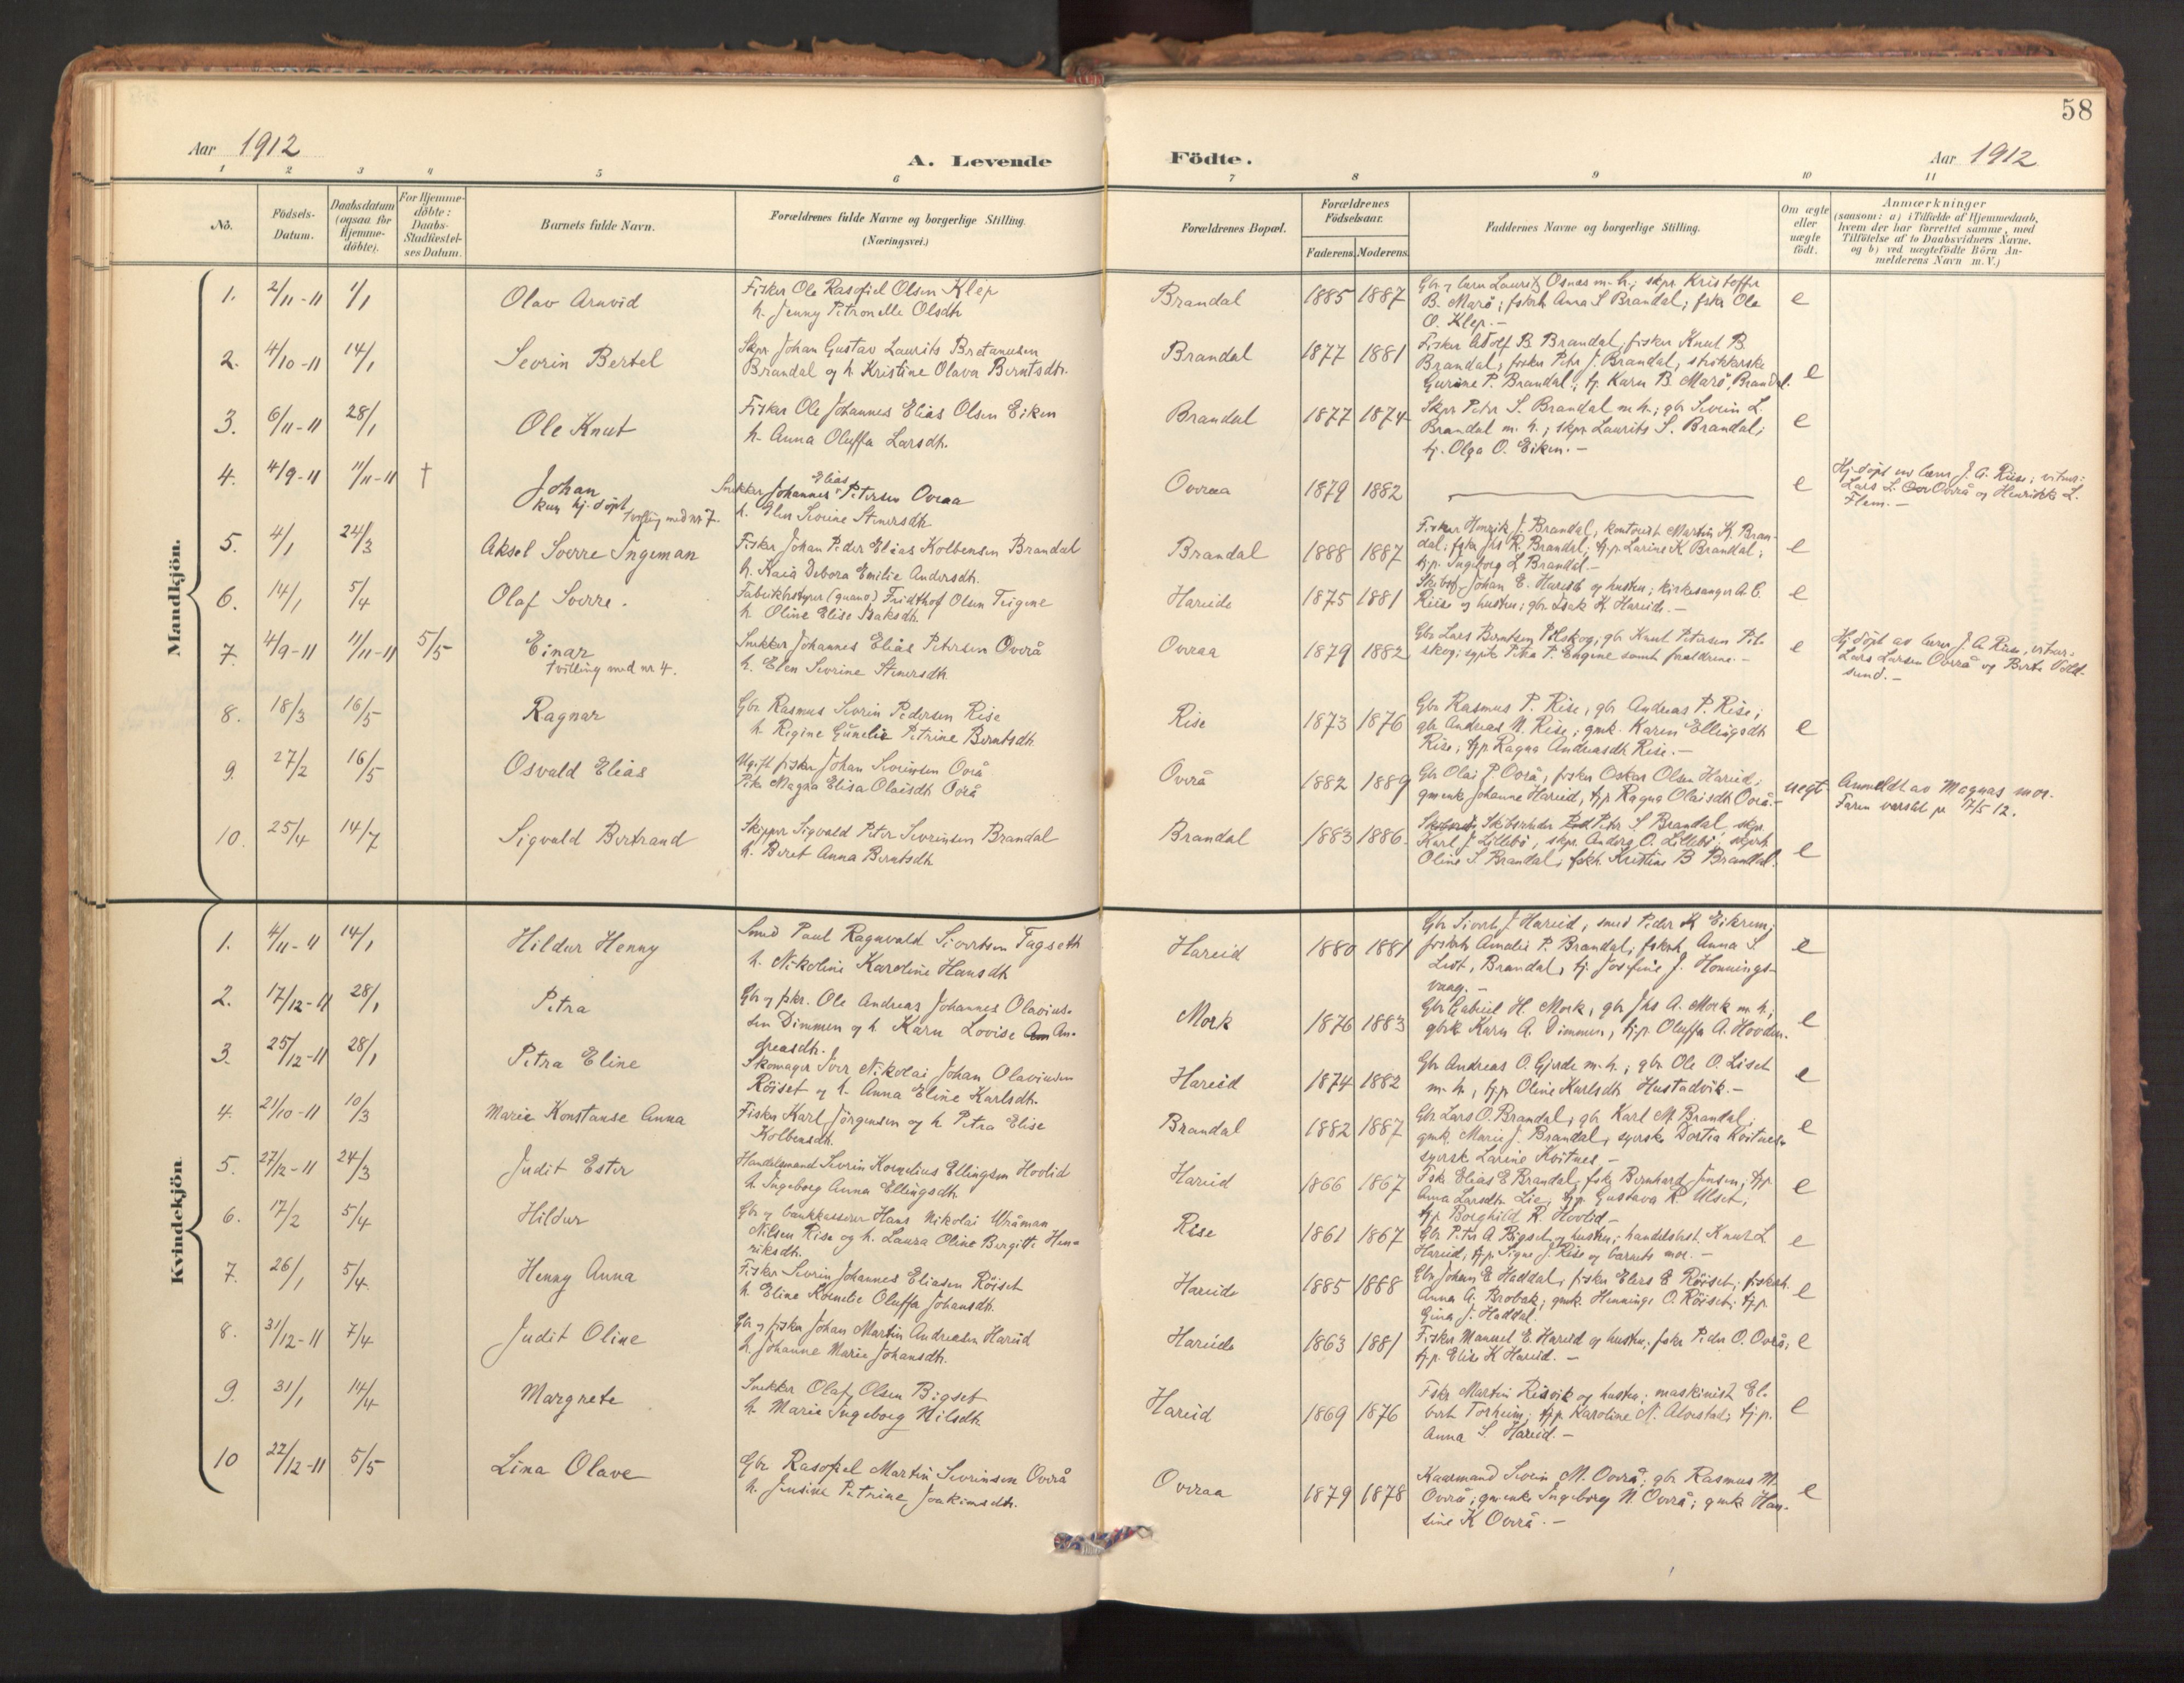 58
Aar 1912
A. Levende Födte.
Aar 1912
1 2 3 4 5 6 7 8 9 10 11
No.
Födsels-
Datum.
Daabsdatum
(ogsaa for
Hjemme-
döbte).
For Hjemme-
döbte:
Daabs-
Stadfæstel-
ses Datum.
Barnets fulde Navn.
Forældrenes fulde Navne og borgerlige Stilling.
(Næringsvei.)
Forældrenes Bopæl.
Forældrenes
Födselsaar.
Faderens. Moderens.
Faddernes Navne og borgerlige Stilling.
Om ægte
eller
uægte
födt.
Anmærkninger
(saasom: a) i Tilfælde af Hjemmedaab,
hvem der har forrettet samme, med
Tilföielse af to Daabsvidners Navne.
og b) ved uægtefödte Börn An-
melderens Navn m. V.)
Mandkjön.
1. 2/11-11 1/1 Olav Arnvid
Fisker Ole Rasofiel Olsen Klep
h. Jenny Petronelle Olsdtr
Brandal 1885 1887
Lauritz Osnes m. h.; skpr. Kristoffer
B. Marö; fskrh Anna S Brandal; fskr Ole
O. Klep.-
e
2. 4/10-11 14/1 Sevrin Bertel
Skpr. Johan Gustav Laurits Bretanusen
Brandal og h. Kristine Olava Berntsdtr.
Brandal 1877 1881
Fisker Adolf B. Brandal, fisker Knut B.
Brandal; fisker Petr J. Brandal; strikkerske
Gurine P. Brandal; tj. Karen B. Marö, Brandal.
e
3. 6/11-11 28/1 Ole Knut
Fisker Ole Johannes Elias Olsen Eiken
h. Anna Oluffa Larsdtr.
Brandal 1877 1874
Skpr Peter S. Brandal m. h.; gbr Severin L.
Brandal m. h.; skpr. Laurits S. Brandal;
tj. Olga O. Eiken.-
e
4. 4/9-11 11/11-11 † Johan
kun hj. döpt
tvilling med nr 7.
Elias
Snekker Johannes Petersen Overaa
h. Elen Severine Steinersdtr.
Overaa 1879 1882
e
Hj. döpt av lærer J. A. Riise; vitner:
Lars L. Overå og Henrikke L.
Flem.-
5. 4/1 24/3 Aksel Sverre Ingeman
Fisker Johan Peder Elias Kolbensen Brandal
h. Kaia Debora Emilie Andersdtr.
Brandal 1888 1887
Fisker Henrik J. Brandal, kontorist Martin K. Bran-
dal; fskr Jhs R. Brandal; tj.p. Larine K Brandal;
tj.p. Ingeborg L Brandal.-
e
6. 14/1 5/4 Olaf Sverre.
Fabrikbstyrer (guano) Fridthof Olsen Teigene
h. Oline Elise Isaksdtr.
Hareide 1875 1881
Johan E. Hareide og hustru; kirkesanger A. E.
Riise og hustru; gbr Isak K Hareide.-
e
7. 4/9-11 11/11-11 5/5 Einar
tvilling med nr 4.
Snekker Johannes Elias Petersen Overå
h. Elen Severine Steinersdtr.
Overaa 1879 1882
Gbr Lars Berntsen Pilskog; gbr Knut Petersen Pil-
skog; sypike Petra P. Engene samt forældrene.-
e
Hj. döpt av lærer J. A. Riise, vitner:
Lars Larsen Overå og Berte Vold-
sund.-
8. 18/3 16/5 Ragnar
Gbr Rasmus Severin Pedersen Rise
h. Regine Gunelie Petrine Berntsdtr.
Rise 1873 1876
Gbr Rasmus P. Rise, gbr Andreas P. Rise;
gbr Andreas N. Rise; gmk. Karen Ellingsdtr
Rise, tj.p Ragna Andreasdtr Rise.-
e
9. 27/2 16/5 Osvald Elias
Ugift fisker Johan Severinsen Overå
Pike Magna Elisa Olaisdtr Overå
Overå 1882 1889
Gbr Olai P. Overå, fisker Oskar Olsen Hareid;
gmenke Johanne Hareid, tj.p Ragna Olaisdtr Overå.-
uegt
Anmeldt av Magnas mor.
Faren varslet pr 17/5 12.
10. 25/4 14/7 Sigvald Bertrand
Skipper Sigvald Peter Severinsen Brandal
h. Beret Anna Berntsdtr.
Brandal 1883 1886.
Skibsreder Petr S. Brandal, skpr.
Karl J. Lillebö, skpr. Anders O. Liljebö; skprh.
Oline S. Brandal; fskh. Kristine B Brandal.
e
Kvindekjön.
1. 4/11-11 14/1 Hildur Henny
Smed Paul Ragnvald Sivertsen Tagseth
h. Nikoline Karoline Hansdtr.
Hareid 1880 1881
Gbr Sivert J Hareid, smed Peder K Eikrem;
fiskerh Amalie P. Brandal; fskrh. Anna S.
Lidt, Brandal, tj. Josefine J. Honnings-
vaag.-
e
2. 17/12-11 28/1 Petra
Gbr og fskr. Ole Andreas Johannes Olavius-
sen Dimmen og h. Karen Lovise An-
dreasdtr.
Mork 1876 1883
Gbr Gabriel H. Mork, gbr Jhs A. Mork m. h;
gbrk Karen A. Dimmen, tj.p. Oluffa A. Hovden.
e
3. 25/12-11 28/1 Petra Eline
Skomager Iver Nikolai Johan Olaviusen
Röiset og h. Anna Eline Karlsdtr.
Hareid 1874 1882
Gbr Andreas O. Gjerde m. h., gbr Ole O. Liset
m. h, tj.p Oline Karlsdtr Hustadvik.-
e
4. 21/10-11 10/3 Marie Konstanse Anna
Fisker Karl Jörgensen og h. Petra Elise
Kolbensdtr.
Brandal 1882 1887
Gbr Lars O. Brandal, gbr Karl M. Brandal;
gmk. Marie J. Brandal, syerske Dortea Kvitnes
syersk Larine Kvitnes.-
e
5. 27/12-11 24/3 Judit Ester
Handelsmand Severin Kornelius Ellingsen Hovlid
h. Ingeborg Anna Ellingsdtr.
Hareid 1866 1867
Fskr Elias E Brandal, fskr Bernhard Jensen, tj.p
Anna Larsdtr Lie, tj.p Gustava R Ulset,
tj.p Borghild R. Hovlid-
e
6. 17/2 5/4 Hildur
Gbr og bankkasserer Hans Nikolai Uråman
Nilsen Rise og h. Laura Oline Bergitte Hen-
riksdtr.
Rise 1861 1867
Gbr Peter A Bigset og hustru; handelsbst. Knut L.
Hareid, tj.p. Signe J. Rise og barnets mor.-
e
7. 26/1 5/4 Henny Anna
Fisker Severin Johannes Eliasen Röiset
h. Eline Kornelie Oluffa Johansdtr.
Hareide 1885 1888
Gbr Johan E Haddal, fisker Elers E Röiset; fiskerh.
Anna A. Brobak; gmk. Henninge O. Röiset; tj.p.
Gina J. Haddal.
e
8. 31/12-11 7/4 Judit Oline
Gbr og fisker Johan Martin Andreasen Hareid
h. Johanne Marie Johansdtr.
Hareide 1863 1881
Fisker Manuel E. Hareid og hustru, fskr Peder O. Overå;
tj.p. Elise K Hareid.-
e
9. 31/1 14/4 Margrete
Snekker Olaf Olsen Bigset
h. Marie Ingeborg Nilsdtr.
Hareid 1869 1876
Fskr. Martin Risvik og hustru; maskinist El-
bert Torheim; tj.p. Karoline N. Alvestad; tj.p.
Anna S. Hareid.-
e
10 22/12-11 5/5 Lina Olave
Gbr Rasofiel Martin Severinsen Overå
h. Jensine Petrine Joakimsdtr.
Overaa 1879 1878
Kaarmand Severin M. Overå; gbr Rasmus M.
Overå; gmenke Ingeborg N. Overå; gmk Han-
sine K Overå.-
e